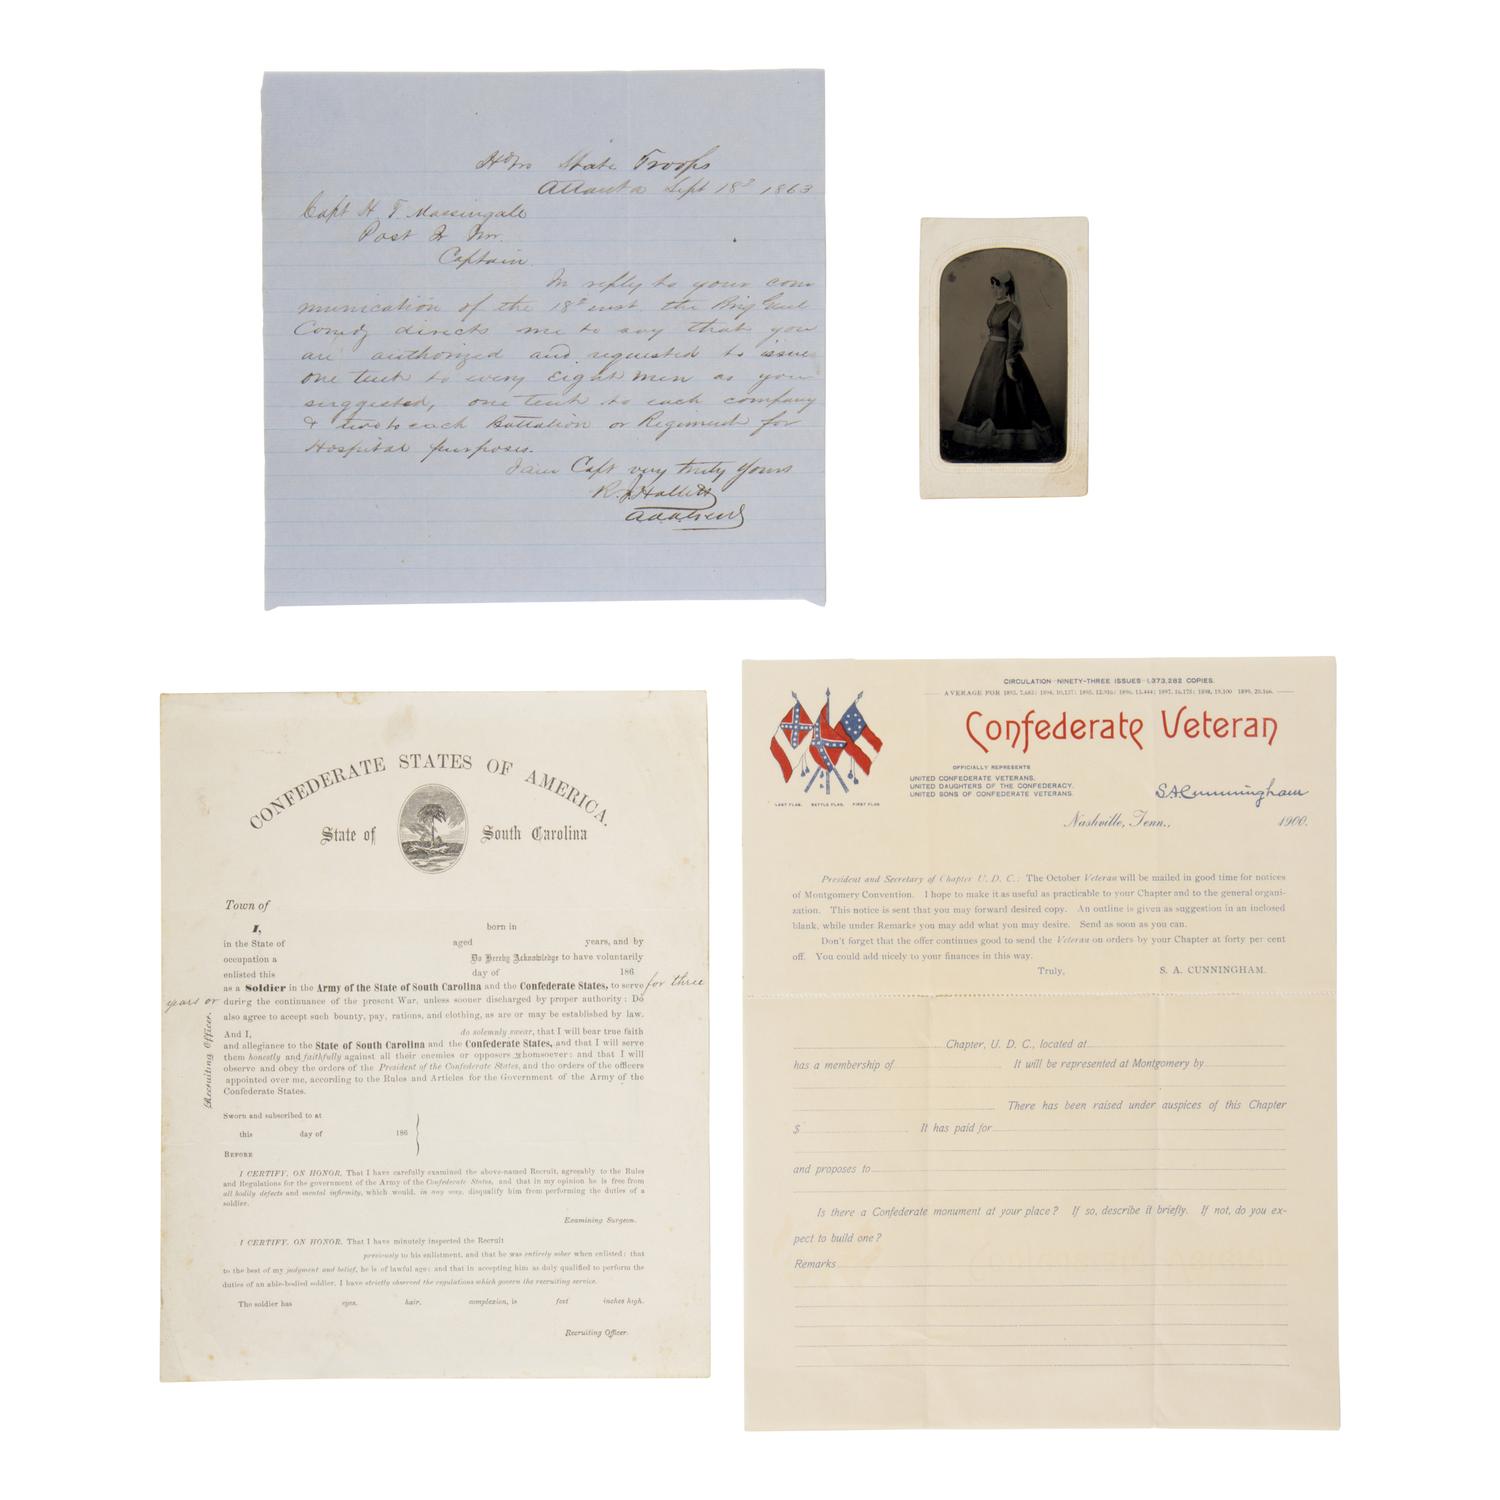 Hdqrs State Troops
Atlanta Sept 18th 1863
Capt H T Massingale
Post Qr Mr.
Captain.
In reply to your com
munication of the 18th inst. the Brig Genl
Comdg directs me to say that you
are authorized and requested to issue
one tent to every Eight men as you
suggested, one tent to each company
& two to each Battalion or Regiment for
Hospital purposes.
I am Capt very truly yours
R. J. Hallett
CONFEDERATE STATES OF AMERICA.
State of South Carolina
Town of
I, born in
in the State of aged years, and by
occupation a Do Hereby Acknowledge to have voluntarily
enlisted this day of 186
as a Soldier in the Army of the State of South Carolina and the Confederate States, to serve for three
years or during the continuance of the present War, unless sooner discharged by proper authority: Do
also agree to accept such bounty, pay, rations, and clothing, as are or may be established by law.
And I, do solemnly swear, that I will bear true faith
and allegiance to the State of South Carolina and the Confederate States, and that I will serve
them honestly and faithfully against all their enemies or opposers whomsoever: and that I will
observe and obey the orders of the President of the Confederate States, and the orders of the officers
appointed over me, according to the Rules and Articles for the Government of the Army of the
Confederate States.
Recruiting Officer.
Sworn and subscribed to at
this day of 186
BEFORE
I CERTIFY, ON HONOR, That I have carefully examined the above-named Recruit, agreeably to the Rules
and Regulations for the government of the Army of the Confederate States, and that in my opinion he is free from
all bodily defects and mental infirmity, which would, in any way, disqualify him from performing the duties of a
soldier.
Examining Surgeon.
I CERTIFY, ON HONOR, That I have minutely inspected the Recruit
previously to his enlistment, and that he was entirely sober when enlisted: that
to the best of my judgment and belief, he is of lawful age: and that in accepting him as duly qualified to perform the
duties of an able-bodied soldier, I have strictly observed the regulations which govern the recruiting service.
The soldier has eyes, hair, complexion, is feet inches high.
Recruiting Officer.
CIRCULATION NINETY-THREE ISSUES 1,373,282 COPIES.
AVERAGE FOR 1893, 7,683; 1894, 10,137; 1895, 12,916; 1896, 13,444; 1897, 16,175; 1898, 19,100 1899, 20,166.
Confederate Veteran
OFFICIALLY REPRESENTS
UNITED CONFEDERATE VETERANS.
UNITED DAUGHTERS OF THE CONFEDERACY.
UNITED SONS OF CONFEDERATE VETERANS.
LAST FLAG. BATTLE FLAG. FIRST FLAG
S A Cunningham
Nashville, Tenn., 1900.
President and Secretary of Chapter U. D. C.: The October Veteran will be mailed in good time for notices
of Montgomery Convention. I hope to make it as useful as practicable to your Chapter and to the general organi-
zation. This notice is sent that you may forward desired copy. An outline is given as suggestion in an inclosed
blank, while under Remarks you may add what you may desire. Send as soon as you can.
Don't forget that the offer continues good to send the Veteran on orders by your Chapter at forty per cent
off. You could add nicely to your finances in this way.
Truly, S. A. CUNNINGHAM.
Chapter, U. D. C., located at
has a membership of It will be represented at Montgomery by
There has been raised under auspices of this Chapter
$ It has paid for
and proposes to
Is there a Confederate monument at your place? If so, describe it briefly. If not, do you ex-
pect to build one?
Remarks